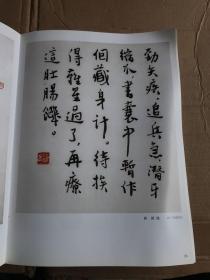 勁矢疾，追兵急。潛牙
縮爪，書囊中暫作
個藏身計。待挨
得難星過了，再療
這肚腸饑。